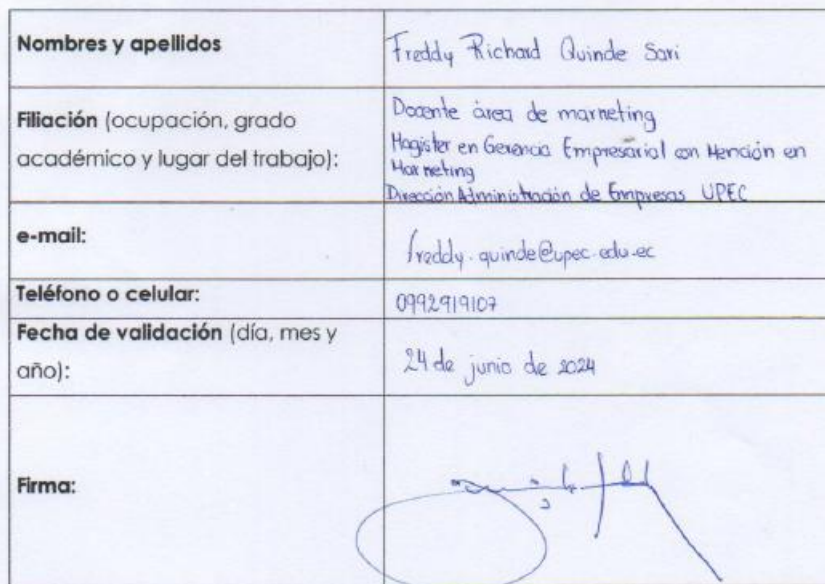 Nombres y apellidos
Freddy Richard Quinde Sari
Filiación (ocupación, grado
académico y lugar del trabajo):
Docente área de marneting
Magister en Gerencia Empresarial con Mención en
Marneting
Dirección Administración de Empresas UPEC
e-mail:
freddy.quinde@upec.edu.ec
Teléfono o celular:
0992919107
Fecha de validación (día, mes y
año):
24 de junio de 2024
Firma: